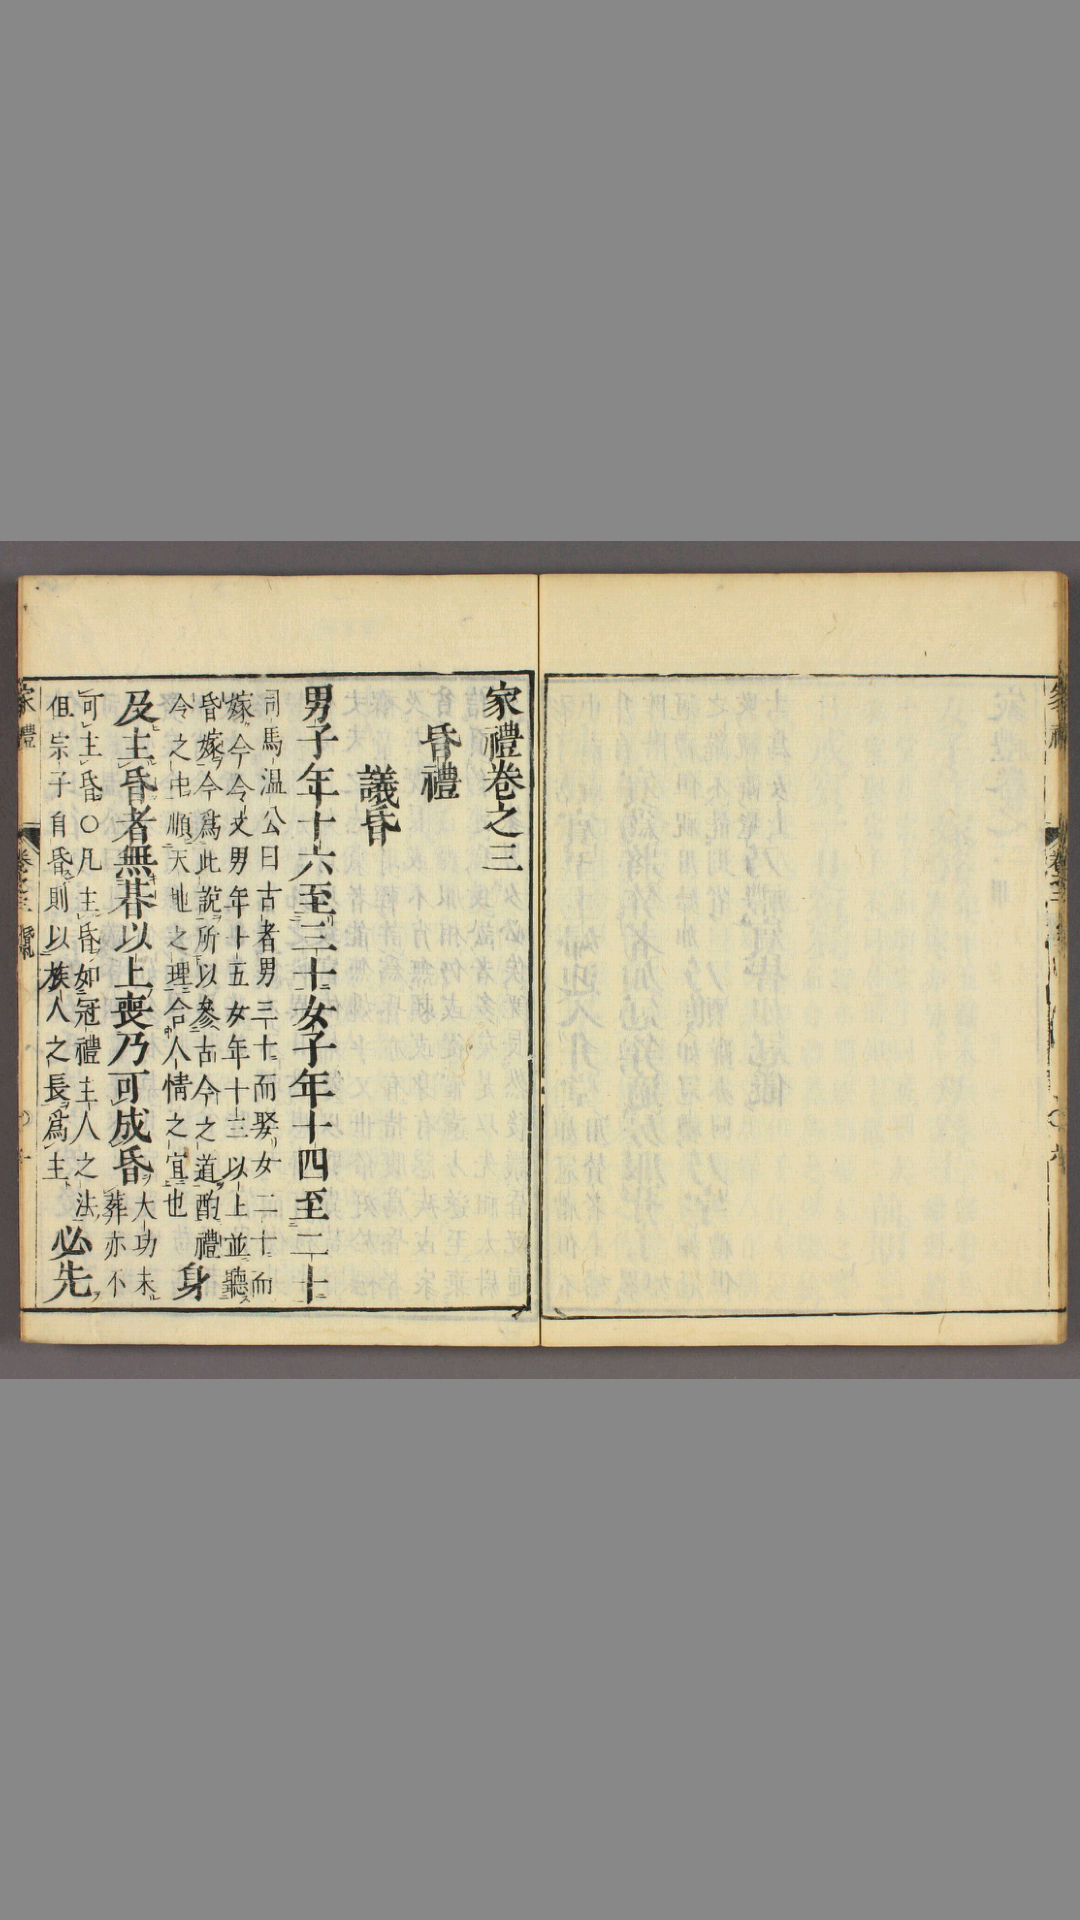 家禮卷之三
昏禮
議昏
男子年十六至三十女子年十四至二十
司馬温公曰古者男三十而娶女二十而
嫁今令文男年十五女年十三以上並聽
昏嫁今爲此說所以參古今之道酌禮
令之中順天地之理合人情之宜也
身
及主昏者無朞以上喪乃可成昏
大功未
葬亦不
可主昏〇凡主昏如冠禮主人之法
但宗子自昏則以族人之長爲主
必先
家禮
卷之三